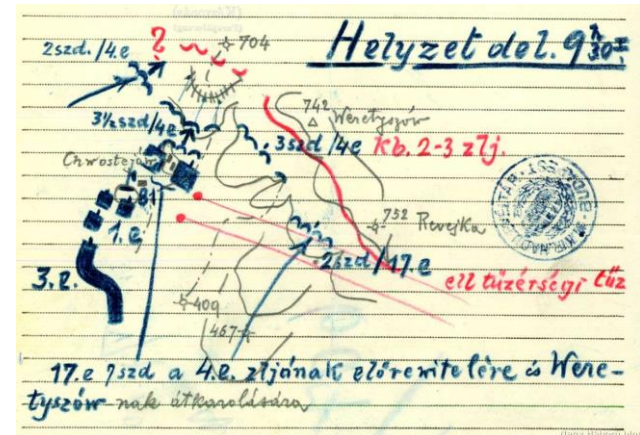 Helyzet del. 9h 30-
2szd./4.e
?
704
3½szd/4e
742
Weretyszów
3szd/4e
Kb. 2-3 zlj.
Chwostejów
81
1.e
752
Revejka
2szd/17.e
ell tüzérségi tűz
3.e.
409
467
17.e 7szd a 4.e. zljának előrevitelére és Were-
tyszów-nak átkarolására